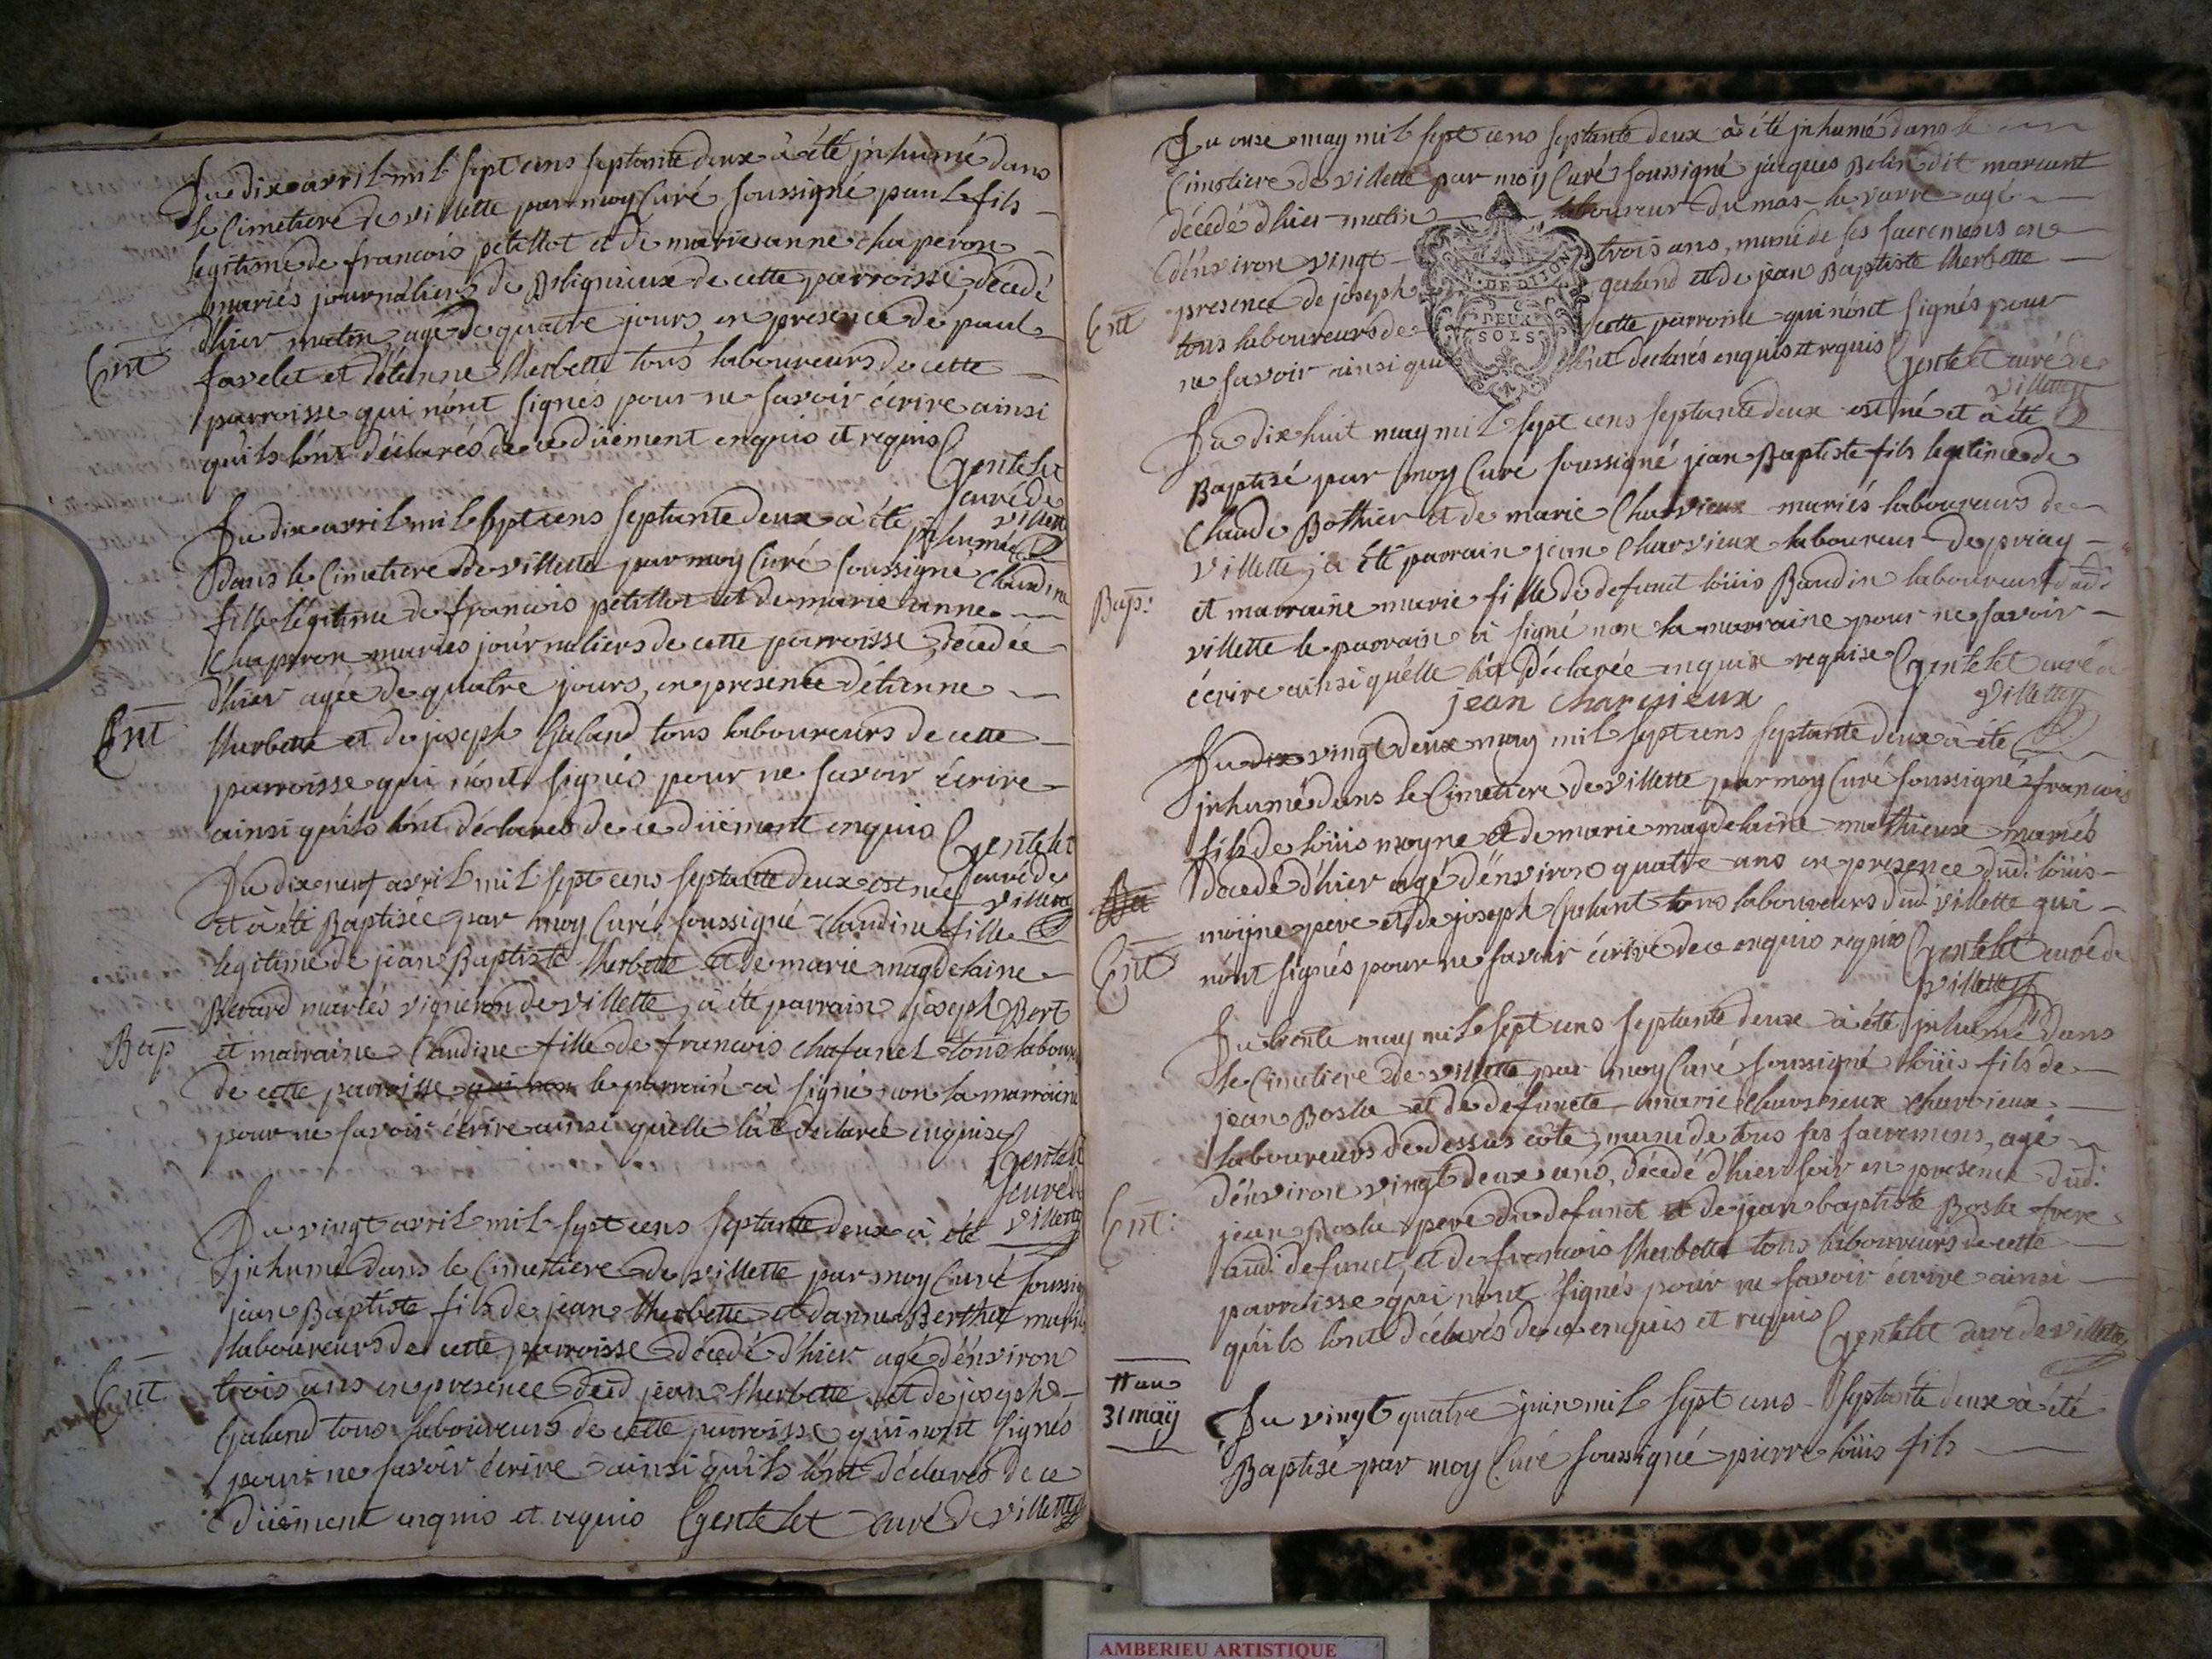 Du dix avril mil sept cens septante deux à été jnhumé dans
le Cimetiere de villette par moy Curé soussigné paul fils
legitime de francois petillot et de marie anne chaperon
mariés journaliers de Blignieux de cette parroisse, décedé
d'hier matin agé de quatre jours, en presence de paul
favelet et d'étienne Therbette tous laboureurs de cette
parroisse qui n'ont signés pour ne savoir écrire ainsi
qu'ils l'ont déclarés de ce düement enquis et requis Gentelet
Ent
curé de
villette
Du dix avril mil sept cens septante deux à été jnhumée
dans le Cimetiere de villette par moy Curé soussigné Claudine
fille légitime de francois petillot et de marie anne
Chaperon mariés journaliers de cette parroisse, décedée
d'hier agée de quatre jours, en presence d'étienne
Ent
Therbette et de joseph Galand tous laboureurs de cette
parroisse qui n'ont signés pour ne savoir écrire
ainsi qu'ils l'ont déclarés de ce düement enquis Gentelet
curé de
villette
Du dix neuf avril mil sept cens septante deux est née
et à été Baptisée par moy Curé soussigné Claudine fille
legitime de jean Baptiste Therbette et de marie magdelaine
Berard mariés vigneron de villette, à été parrain joseph Bert
Bap
et marraine Claudine fille de francois chafanel tous labour
de cette parroisse qui non le parrain à signé non la marraine
pour ne savoir écrire ainsi qu'elle l'a declarée enquise
Gentelet
curé de
villette
Du vingt avril mil sept cens septante deux à été
jnhumé dans le Cimetiere de villette par moy Curé soussig
jean Baptiste fils de jean Therbette et d'anne Berthet mariés
laboureurs de cette parroisse décedé d'hier agé d'environ
Ent
trois ans en presence dud jean Therbette et de joseph
Galand tous laboureurs de cette parroisse qui n'ont signés
pour ne savoir écrire ainsi qu'ils l'ont déclarés de ce
düement enquis et requis Gentelet curé de villette
Du onze may mil sept cens septante deux à été jnhumé dans le
Cimetiere de villette par moy Curé soussigné jacques Belin dit marcant
décedé d'hier matin laboureur du mas la varre agé
d'environ vingt trois ans, muni de ses sacremens en
presence de joseph galand et de jean Baptiste therbette
Ent
tous laboureurs de cette parroisse qui n'ont signés pour
ne savoir ainsi qu'ils l'ont declarés enquis et requis Gentelet curé de
villette
DE DIJON
DEUX
SOLS
Du dix huit may mil sept cens septante deux est né et à été
Baptisé par moy Curé soussigné jean Baptiste fils legitime de
Claude Bothier et de marie Charvieux mariés laboureurs de
villette, à été parrain jean Charvieux laboureur de priay
Bap:
et marraine marie fille de defunct loüis Baudin laboureur dud:
villette le parrain à signé non la marraine pour ne savoir
écrire ainsi qu'elle l'a déclarée enquise requise Gentelet curé de
jean charvieux
villette
Du dix vingt deux may mil sept cens septante deux à été
jnhumé dans le Cimetiere de villette par moy Curé soussigné francois
fils de loüis moyne et de marie magdelaine mathieux mariés
décedé d'hier agé d'environ quatre ans en presence dud: loüis
moyne pere et de joseph Galant tous laboureurs dud: villette qui
Ent
n'ont signés pour ne savoir écrire de ce enquis requis Gentelet curé de
villette
Du trente may mil sept cens septante deux à été jnhumé dans
le Cimetiere de villette par moy Curé soussigné loüis fils de
jean Bosla et de défuncte marie Charvieux charvieux
laboureurs de dessus côte, muni de tous ses sacremens, agé
d'environ vingt deux ans, décedé d'hier soir en presence dud:
Ent:
jean Bosla pere du defunct et de jean baptiste Bosla frere
aud: defunct, et de francois Therbette tous laboureurs de cette
parroisse qui n'ont signés pour ne savoir écrire ainsi
qu'ils l'ont déclarés de ce enquis et requis Gentelet curé de villette
31 may
Du vingt quatre juin mil sept cens septante deux à été
Baptisé par moy Curé soussigné pierre loüis fils
AMBERIEU ARTISTIQUE